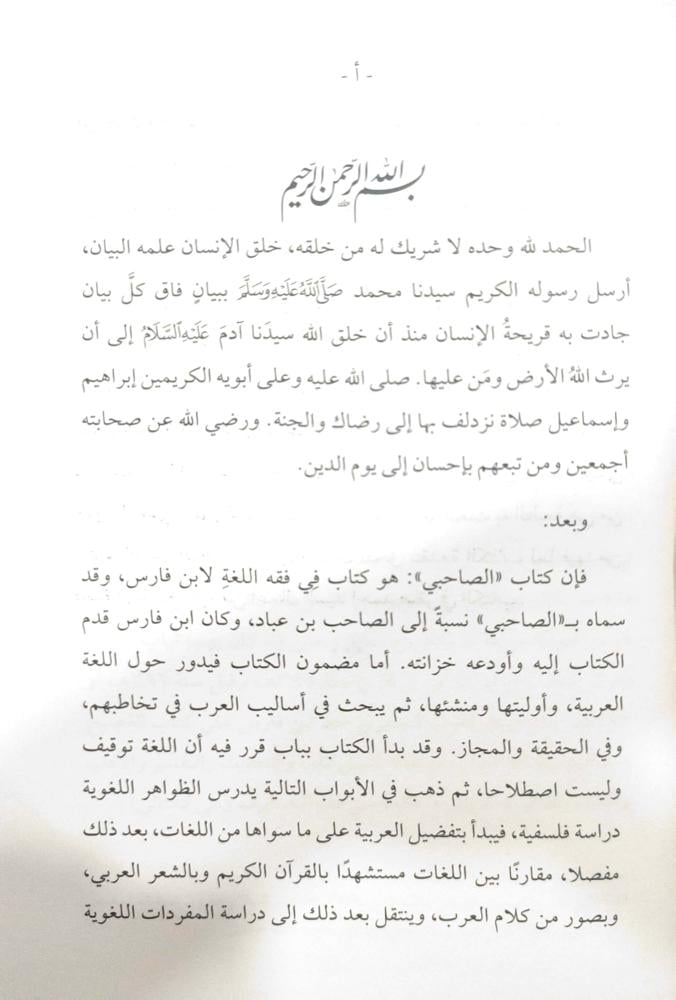 - أ -
بسم الله الرحمن الرحيم
الحمد لله وحده لا شريك له من خلقه، خلق الإنسان علمه البيان،
أرسل رسوله الكريم سيدنا محمد صَلَّى اللَّهُ عَلَيْهِ وَسَلَّمَ ببيانٍ فاق كلَّ بيان
جادت به قريحةُ الإنسان منذ أن خلق الله سيدَنا آدمَ عَلَيْهِ السَّلَامُ إلى أن
يرث اللهُ الأرض ومَن عليها. صلى الله عليه وعلى أبويه الكريمين إبراهيم
وإسماعيل صلاة نزدلف بها إلى رضاك والجنة. ورضي الله عن صحابته
أجمعين ومن تبعهم بإحسان إلى يوم الدين.
وبعد:
فإن كتاب «الصاحبي»: هو كتاب فِي فقه اللغةِ لابن فارس، وقد
سماه بـ«الصاحبي» نسبةً إلى الصاحب بن عباد، وكان ابن فارس قدم
الكتاب إليه وأودعه خزانته. أما مضمون الكتاب فيدور حول اللغة
العربية، وأوليتها ومنشئها، ثم يبحث في أساليب العرب في تخاطبهم،
وفي الحقيقة والمجاز. وقد بدأ الكتاب بباب قرر فيه أن اللغة توقيف
وليست اصطلاحا، ثم ذهب في الأبواب التالية يدرس الظواهر اللغوية
دراسة فلسفية، فيبدأ بتفضيل العربية على ما سواها من اللغات، بعد ذلك
مفصلا، مقارنًا بين اللغات مستشهدًا بالقرآن الكريم وبالشعر العربي،
وبصور من كلام العرب، وينتقل بعد ذلك إلى دراسة المفردات اللغوية